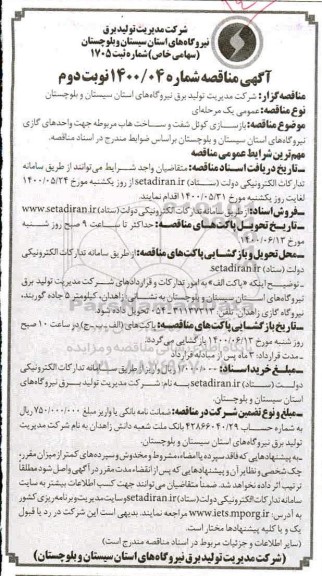 شرکت مدیریت تولید برق
نیروگاه‌های استان سیستان و بلوچستان
(سهامی خاص) شماره ثبت ۱۷۰۵
آگهی مناقصه شماره ۱۴۰۰/۰۴ نوبت دوم
مناقصه گزار: شرکت مدیریت تولید برق نیروگاه‌های استان سیستان و بلوچستان
نوع مناقصه: عمومی یک مرحله‌ای
موضوع مناقصه: بازسازی کوئل شفت و ساخت هاب مربوطه جهت واحدهای گازی
نیروگاه‌های استان سیستان و بلوچستان براساس ضوابط مندرج در اسناد مناقصه.
مهم‌ترین شرایط عمومی مناقصه
ـ تاریخ دریافت اسناد مناقصه: متقاضیان واجد شرایط می‌توانند از طریق سامانه
تدارکات الکترونیکی دولت (ستاد) setadiran.ir از روز یکشنبه مورخ ۱۴۰۰/۰۵/۲۴
لغایت روز یکشنبه مورخ ۱۴۰۰/۰۵/۳۱ اقدام نمایند.
ـ فروش اسناد: از طریق سامانه تدارکات الکترونیکی دولت (ستاد) www.setadiran.ir
ـ تاریخ تحویل پاکت‌های مناقصه: حداکثر تا ساعت ۹ صبح روز شنبه
مورخ ۱۴۰۰/۰۶/۱۳
ـ محل تحویل و بازگشایی پاکت‌های مناقصه: از طریق سامانه تدارکات الکترونیکی
دولت (ستاد) setadiran.ir
ـ توضیح اینکه «پاکت الف» به امور تدارکات و قراردادهای شرکت مدیریت تولید برق
نیروگاه‌های استان سیستان و بلوچستان به نشانی زاهدان، کیلومتر ۵ جاده گوربند،
نیروگاه گازی زاهدان، تلفن: ۳۱۱۳۷۳۱۳ـ۰۵۴ تحویل داده شود.
ـ تاریخ بازگشایی پاکت‌های مناقصه: پاکت‌های (الف ـ ب ـ ج) در ساعت ۱۰ صبح
روز شنبه مورخ ۱۴۰۰/۰۶/۱۳ بازگشایی می‌گردد.
ـ مدت قرارداد: ۳ ماه پس از مبادله قرارداد
ـ مبلغ خرید اسناد: ۱/۰۰۰/۰۰۰ ریال واریز از طریق سامانه تدارکات الکترونیکی
دولت (ستاد) setadiran.ir به نام: شرکت مدیریت تولید برق نیروگاه‌های
استان سیستان و بلوچستان.
ـ مبلغ و نوع تضمین شرکت در مناقصه: ضمانت نامه بانکی یا واریز مبلغ ۷۵۰/۰۰۰/۰۰۰ ریال
به شماره حساب ۴۲۸۶۶۰۴۰/۲۹ بانک ملت شعبه دانش زاهدان به نام شرکت مدیریت
تولید برق نیروگاه‌های استان سیستان و بلوچستان.
ـ به پیشنهادهایی که فاقد سپرده یا امضاء، مشروط و مخدوش و سپرده‌های کمتر از میزان مقرر،
چک شخصی و نظایر آن و پیشنهادهایی که پس از انقضاء مدت مقرر در آگهی واصل شود مطلقاً
ترتیب اثر داده نخواهد شد. ضمناً متقاضیان می‌توانند جهت کسب اطلاعات بیشتر به سایت
سامانه تدارکات الکترونیکی دولت (ستاد) setadiran.ir و سایت مدیریت و برنامه‌ریزی کشور
به آدرس: www.iets.mporg.ir مراجعه نمایند. بدیهی است این شرکت در رد یا قبول
یک و یا کلیه پیشنهادها مختار است.
(سایر اطلاعات و جزئیات مربوط در اسناد مناقصه مندرج است)
(شرکت مدیریت تولید برق نیروگاه‌های استان سیستان و بلوچستان)